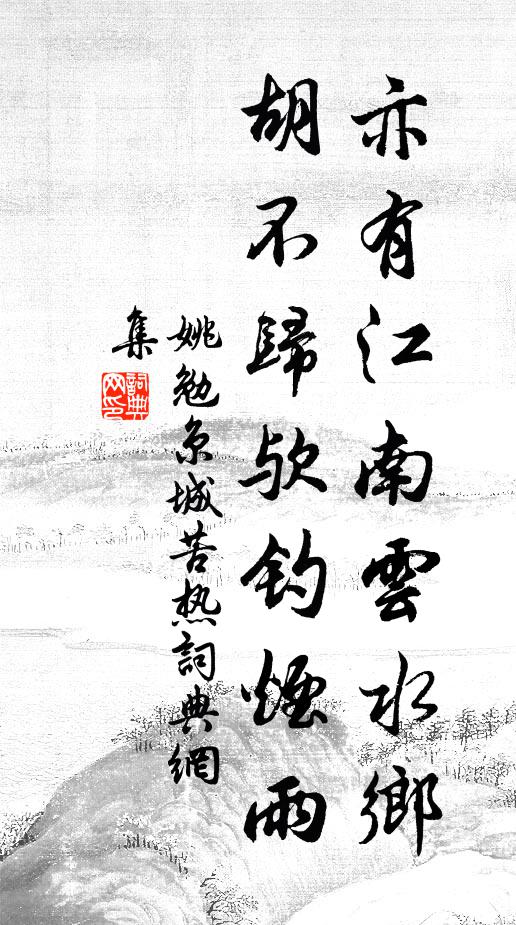 亦有江南雲水鄉
胡不歸欤釣煙雨
姚勉京城苦热詞典網
集
詞典網印